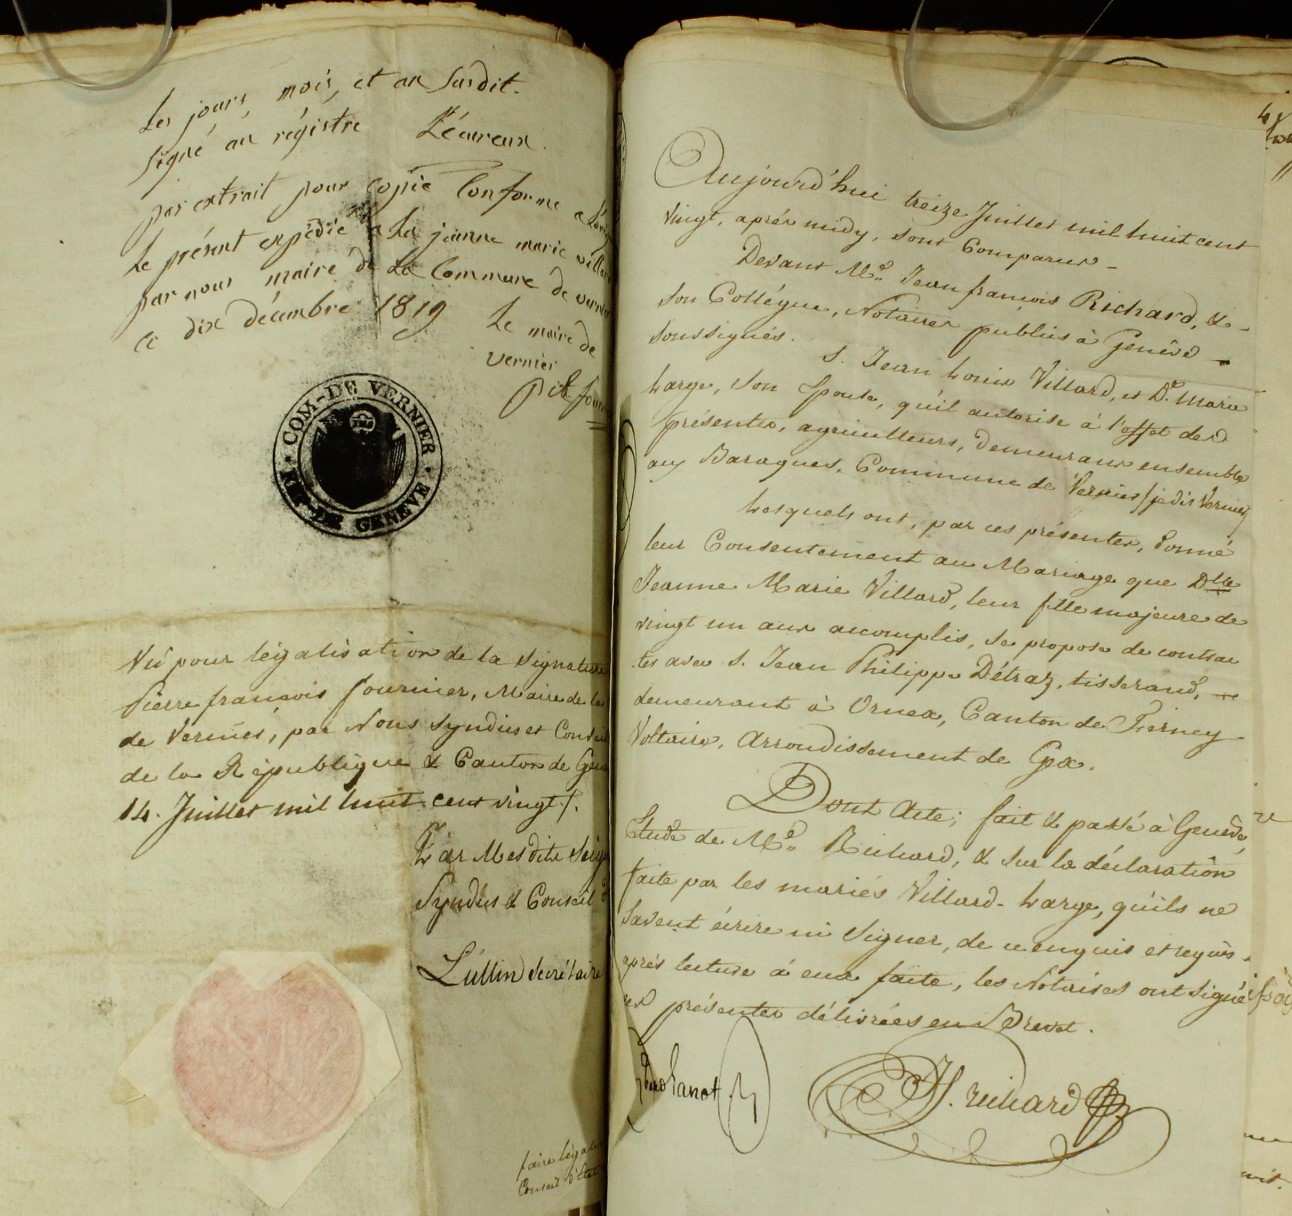 Les jours, mois, et an Susdit.
signé au régistre Lécureux.
par extrait pour copie Conforme a
Le présent expédié a La jeanne marie villar
par nous maire de La Commune de vernier
ce dix décembre 1819 Le maire de
vernier
COM-DE VERNIER
DE GENEVE
Vû pour légalisation de la signature
Pierre françois fournier, Maire de la
de Verniés, par Nous Syndics et Conseil
de la République & Canton de Gen
14. Juillet mil huit cent vingt/.
Par Mesdits Seig
Syndics & Conseil
Lullin Secrétaire
faire légal
Conseil d'Etat
Aujourd'hui treize Juillet mil huit cent
vingt, après midy, sont Comparus
Devant Me. Jean françois Richard, &
son Collégue, Notaires publics à Genève
soussignés.
S. Jean Louis Villard, et De. Marie
Large, son Epouse, qu'il autorise à l'effet des
présentes, agriculteurs, demeurans ensemble
aux Baraques, Commune de Verniés (je dis Vernier)
Lesquels ont, par ces présentes, donné
leur Consentement au Mariage que Dlle
Jeanne Marie Villard, leur fille majeure de
vingt un ans accomplis, se propose de contrac
-ter avec S. Jean Philippe Détraz, tisserand,
demeurant à Ornex, Canton de Ferney
Voltaire, Arrondissement de Gex.
Dont Acte; fait & passé à Genève,
Etude de Me. Richard, & sur la déclaration
faite par les mariés Villard-Large, qu'ils ne
savent écrire ni signer, de ce enquis et requis
après lecture à eux faite, les Notaires ont signé
ces présentes délivrées en Brevet.
Janot
Jf. Richard